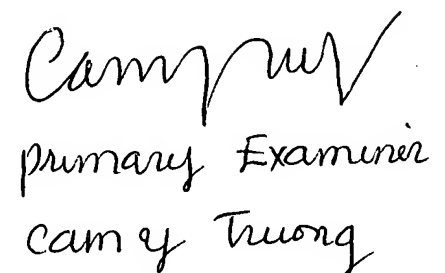 primary Examiner
cam y Truong